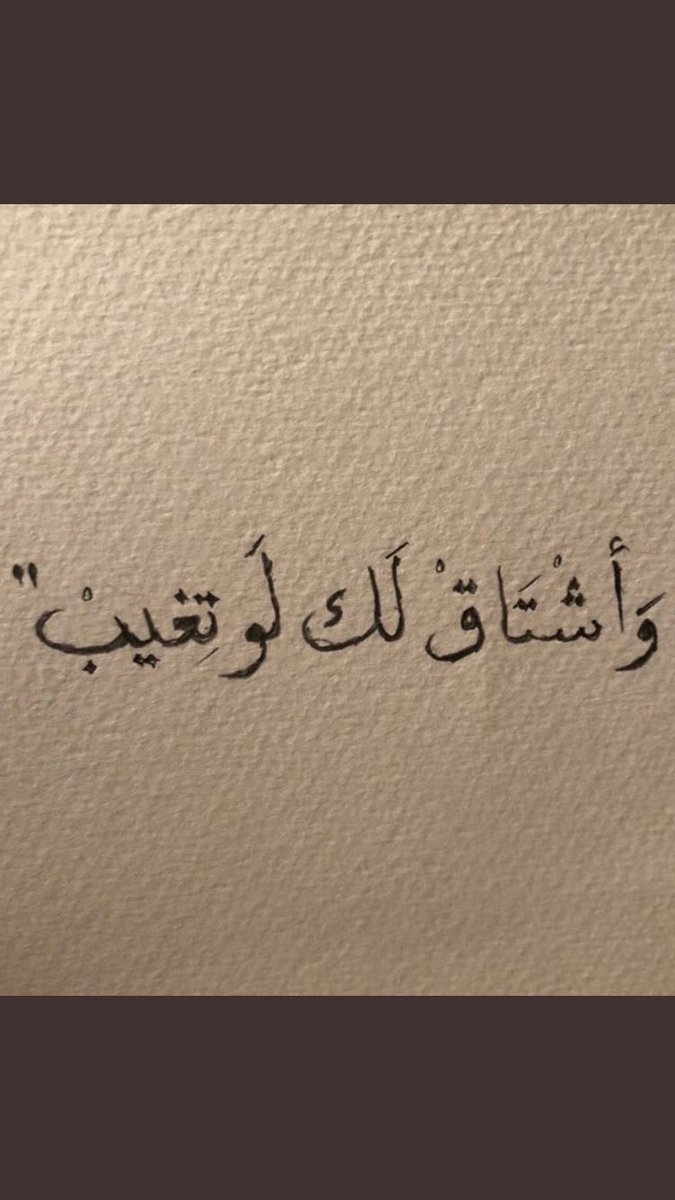 وَأَشْتَاقْ لَك لَو تِغيبْ"